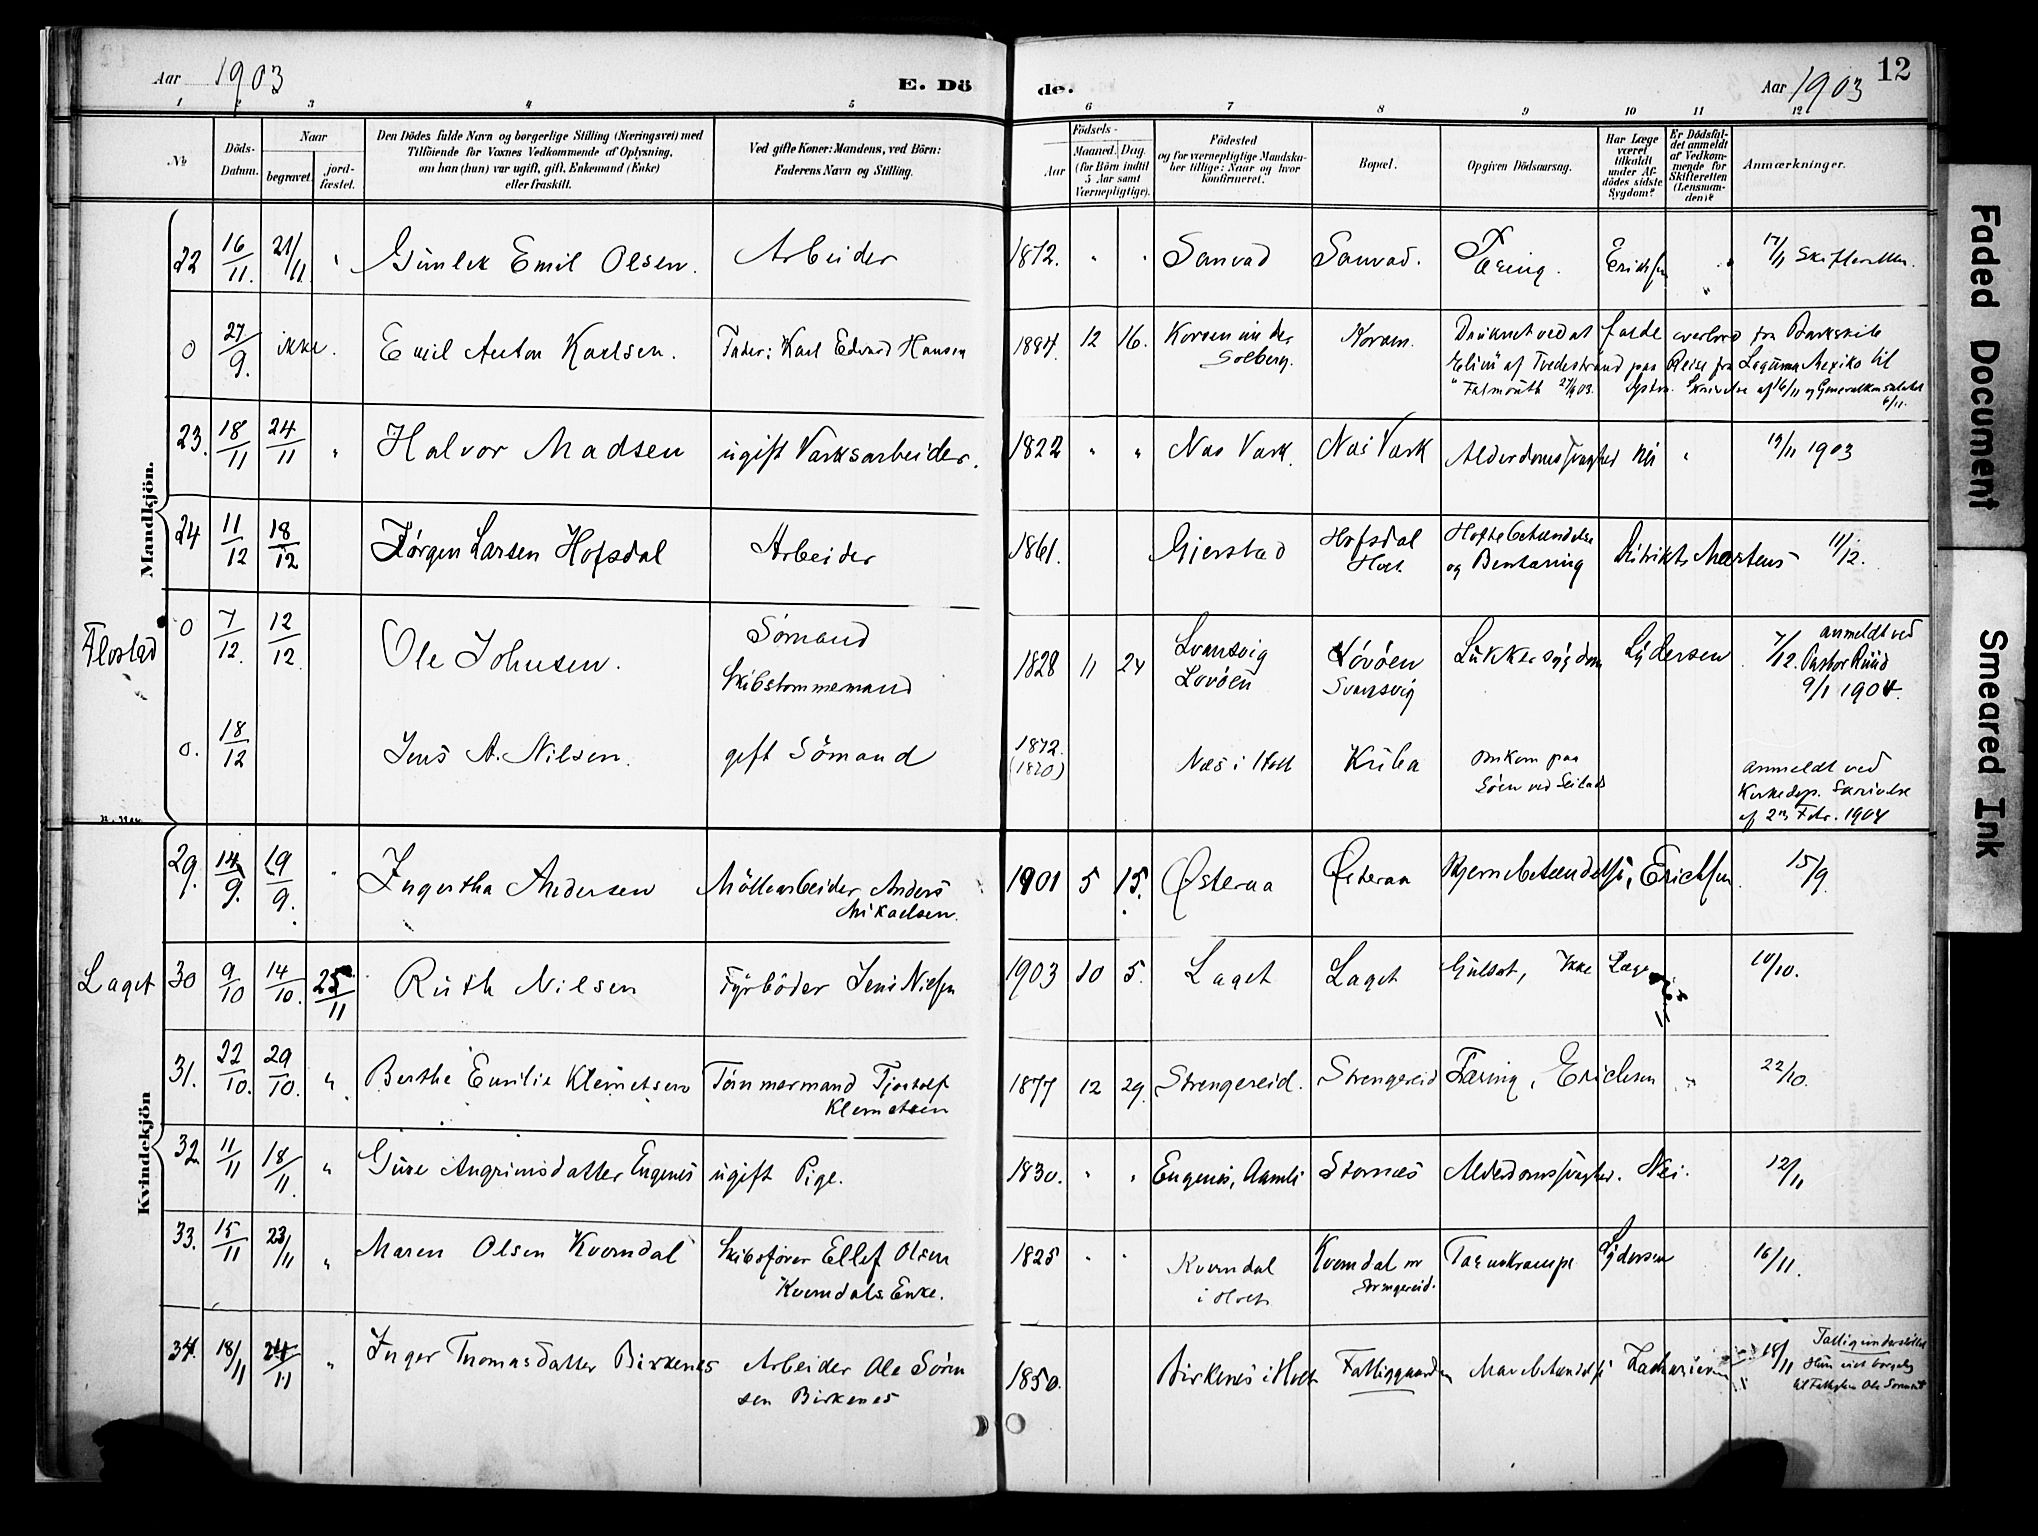 Aar 1903
E. Dö
de.
Aar 1903
12
1 2 3 4 5 6 7 8 9 10 11 12
No
Döds-
Datum.
Naar
begravet.
jord-
fæstet.
Den Dödes fulde Navn og borgerlige Stilling (Næringsvei) med
Tilföiende for Voxnes Vedkommende af Oplysning,
om han (hun) var ugift, gift, Enkemand (Enke)
eller fraskilt.
Ved gifte Koner: Mandens, ved Börn:
Faderens Navn og Stilling.
Födsels-
Aar
Maaned. Dag.
(for Börn indtil
5 Aar samt
Værnepligtige).
Födested
og for værnepligtige Mandska-
ber tillige: Naar og hvor
konfirmeret.
Bopæl.
Opgiven Dödsaarsag.
Har Læge
været
tilkaldt
under Af-
dödes sidste
Sygdom?
Er Dödsfal-
det anmeldt
af Vedkom-
mende for
Skifteretten
(Lensman-
den)?
Anmærkninger.
Mandkjön.
22 16/11. 21/11 " Gunlek Emil Olsen. Arbeider 1872. " " Sanvad Sanvad. Tæring. Erichsen " 17/11 Skifteretten.
0 27/9. ikke. Emil Anton Karlsen. Fader: Karl Edvard Hansen 1884 12 16. Korsen under
Solberg. Korsen. Druknet ved at falde overbord fra Barkskib
af Tvedestrand paa Reise fra Laguna Mexiko til
Falmouth 27/9 03. Skrivelse af 16/11 og Generalkonsulatet
6/11.
23. 18/11 24/11 " Halvor Madsen ugift Værksarbeider. 1822 " " Næs Værk. Næs Værk Alderdomssvaghed Nei " 19/11 1903
24 11/12 18/12 Jørgen Larsen Hofsdal Arbeider 1861. Gjerstad Hofsdal
Holt Hoftebetændelse
og Bentæring Distrikts Martens 11/12.
Flostad 0 7/12. 12/12 Ole Johnsen. Sømand
Skibstømmermand 1828 11 24 Svansvig
Lovøen Lovøen
Svansvig Sukkersygdom Lydersen 7/12. anmeldt ved
Pastor Ruud
9/1 1904.
0. 18/12 Jens A. Nilsen. gift Sömand 1872.
(1870) Næs i Holt Kuba Omkom paa
Søen ved Seilads Anmeldt ved
Kirkedep. Skrivelse
af 2den Febr. 1904
Kvindekjön
29. 14/9. 19/9. " Ingertha Andersen Möllearbeider Anders
Mikaelsen. 1901 5 15. Østeraa Østeraa Hjernebetændelse, Erichsen. 15/9.
Laget 30 9/10 14/10. 25/11 Ruth Nilsen Fyrböder Jens Nielsen 1903 10 5. Laget Laget Gulsot, Ikke Læge 10/10.
31. 22/10. 29/10. " Berthe Emilie Klemetsen Tömmermand Tjostolf
Klemetsen 1877 12 29. Strengereid. Strengereid Tæring, Erichsen " 22/10.
32. 11/11 18/11. " Gure Angrimsdatter Eugenes ugift Pige. 1830. " " Eugenes, Aamli Stornæs Alderdomssvaghed. Nei. 12/11
33. 15/11 23/11 " Maren Olsen Kverndal Skibsfører Ellef Olsen
Kverndals Enke. 1825 " " Kverndal
i Holt Kverndal nr
Strengereid. Tarmkrampe Lydersen 16/11.
34. 18/11 24/11 " Inger Thomasdatter Birkenes Arbeider Ole Sörn
sen Birkenes 1850. Birkenes i Holt Fattiggaarden Mavebetændelse Zachariasen 18/11 Fattigunderstöttet
Faded Document
Smeared Ink